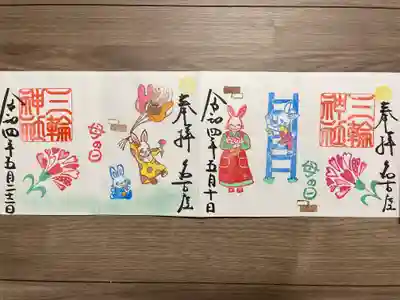 奉拝 名古屋
三輪
神社
母の日
令和四年五月十日
奉拝 名古屋
母の日
三輪
神社
令和四年五月